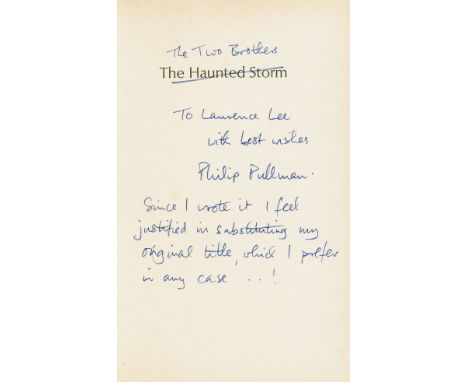 The Two Brothers
The Haunted Storm
To Lawrence Lee
with best wishes
Philip Pullman.
Since I wrote it I feel
justified in substituting my
original title, which I prefer
in any case . . !